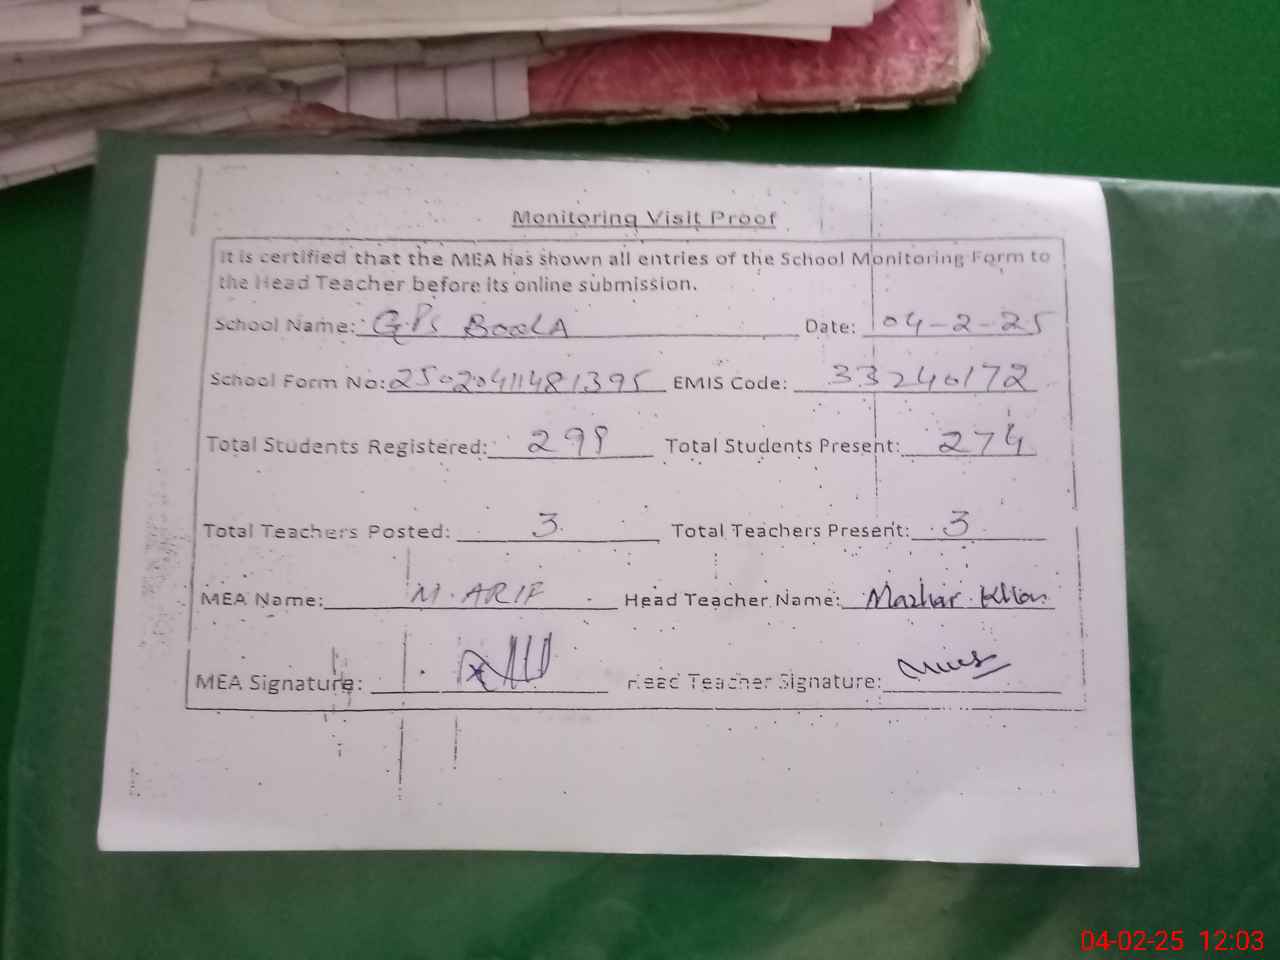 Monitoring Visit Proof
It is certified that the MEA has shown all entries of the School Monitoring Form to
the Head Teacher before its online submission.
School Name: GPS BoolA Date: 04-2-25
School Form No: 25020411481395 EMIS Code: 33240172
Total Students Registered: 298 Total Students Present: 274
Total Teachers Posted: 3 Total Teachers Present: 3
MEA Name: M. ARIF Head Teacher Name: Mazhar Khan
MEA Signature: Head Teacher Signature:
04-02-25 12:03